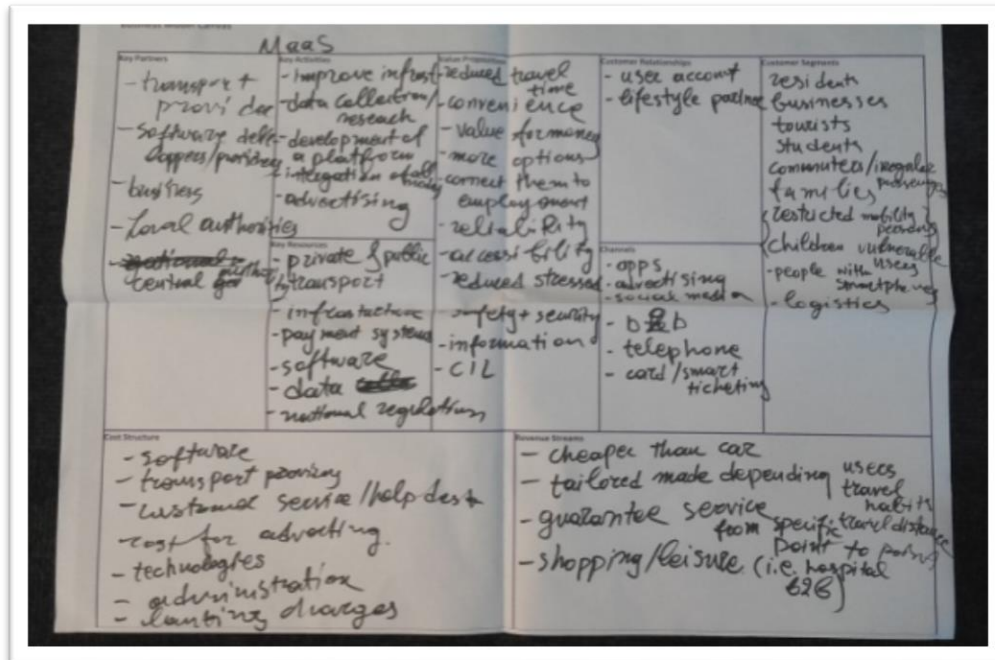 Business Model Canvas
MaaS
Key Partners
- transport
provider
- software deve-
loppers/providers
- business
- Local authorities
central
Key Activities
- improve infrast
- data collection/
research
- development of
a platform
- integration of all
- advertising
Key Resources
- private & public
transport
- infrastructure
- payment systems
- software
- data
- national regulations
Value Propositions
- reduced travel
time
- convenience
- value for money
- more options
- connect them to
employment
- reliability
- accessibility
reduced stressed
safety + security
- information
- CIL
Customer Relationships
- user account
- lifestyle partner
Channels
- apps
- advertising
- social media
- b2b
- telephone
- card/smart
ticketing
Customer Segments
residents
businesses
tourists
students
commuters/irregular
passengers
families
restricted mobility
persons
children vulnerable
users
- people with
smartphones
- logistics
Cost Structure
- software
- transport providing
- customer service/help desk
- cost for adverting.
- technologies
- administration
charges
Revenue Streams
- cheaper than car
- tailored made depending users
travel
habits
- guarantee service
from specific travel distance
point to point
- shopping/leisure (i.e. hospital
b2b)